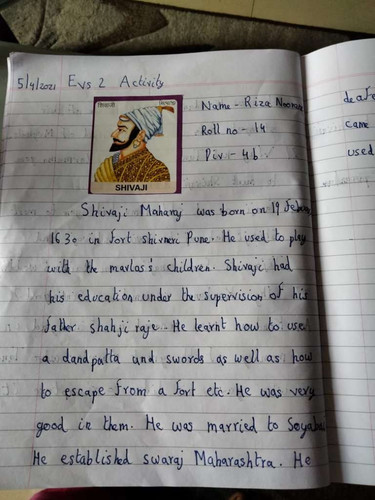 5/4/2021 Evs 2 Activity
शिवाजी
SHIVAJI
Name - Riza
Roll no - 14
Div - 4b
Shivaji Maharaj was born on 19
1630 in fort shivneri Pune. He used to play
with the mavlas's children. Shivaji had
his education under the supervision of his
father shahji raje. He learnt how to use
a dandpatta and swords as well as how
to escape from a fort etc. He was very
good in them. He was married to
He established swaraj Maharashtra. He
came
used